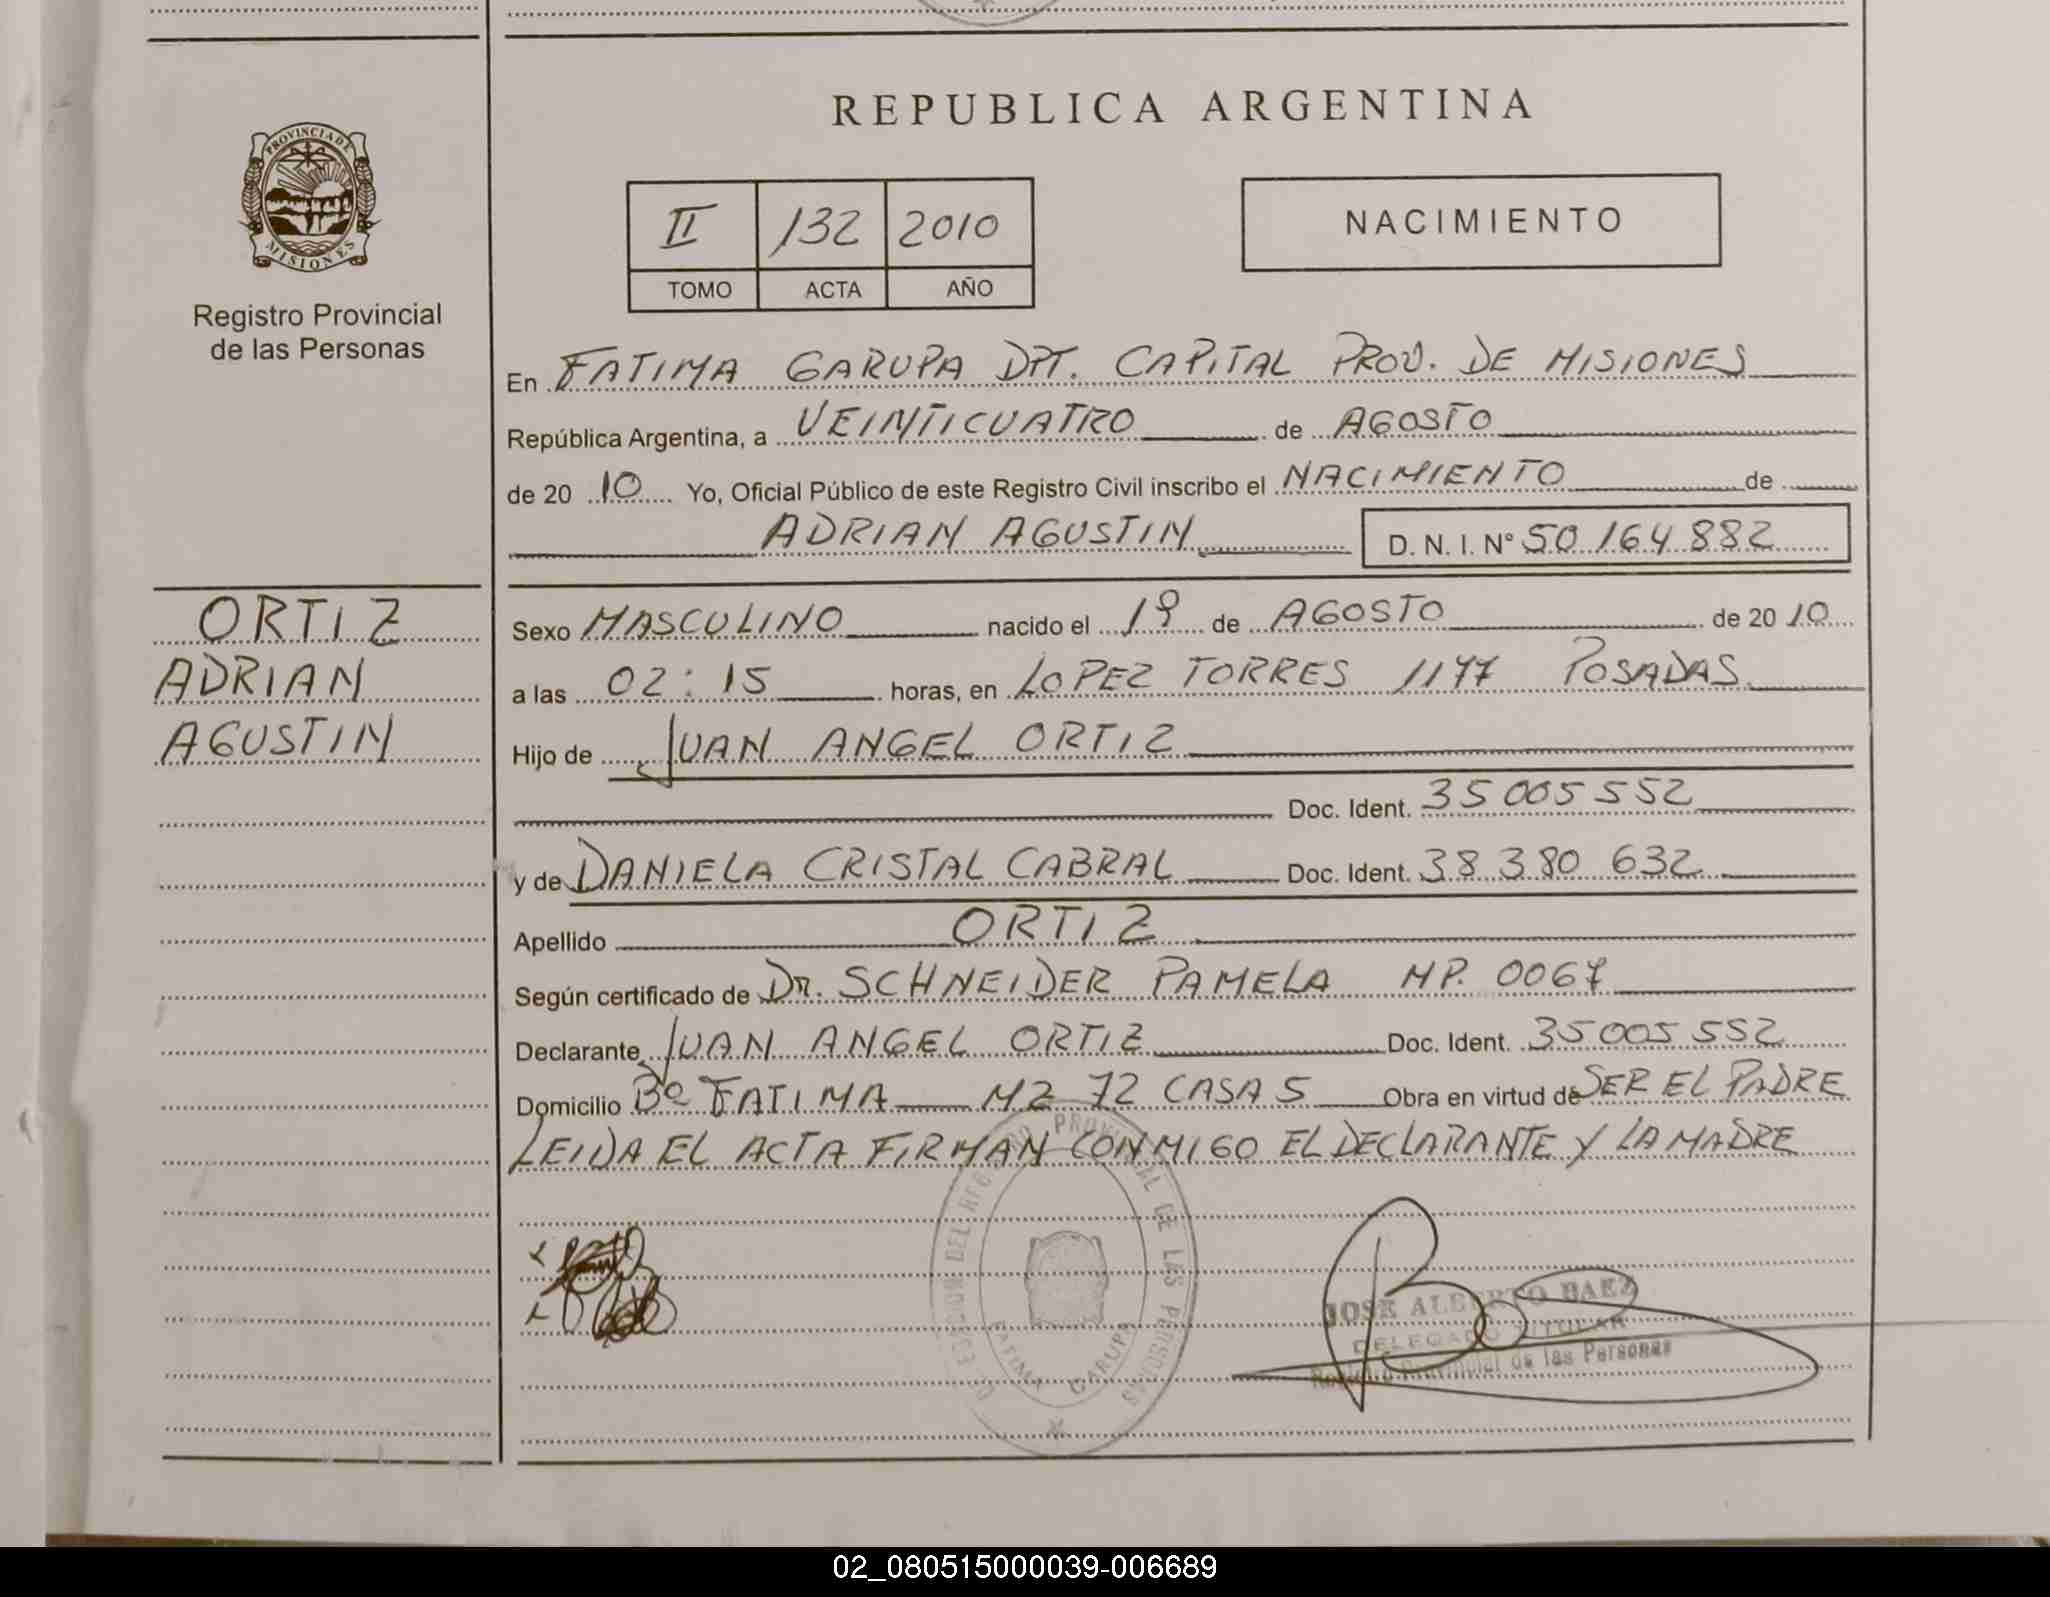 REPUBLICA ARGENTINA
PROVINCIA DE
MISIONES
Registro Provincial
de las Personas
II 132 2010
TOMO ACTA AÑO
NACIMIENTO
En FATIMA GARUPA DPT. CAPITAL PROV. DE MISIONES
República Argentina, a VEINTICUATRO de AGOSTO
de 20 10 Yo, Oficial Público de este Registro Civil inscribo el NACIMIENTO de
ADRIAN AGUSTIN D. N. I. N° 50 164 882
ORTIZ
ADRIAN
AGUSTIN
Sexo MASCULINO nacido el 1º de AGOSTO de 20 10
a las 02:15 horas, en LOPEZ TORRES 1177 POSADAS
Hijo de JUAN ANGEL ORTIZ
Doc. Ident. 35 005 552
y de DANIELA CRISTAL CABRAL Doc. Ident. 38 380 632
Apellido ORTIZ
Según certificado de Dr. SCHNEIDER PAMELA MP. 0067
Declarante JUAN ANGEL ORTIZ Doc. Ident. 35 005 552
Domicilio Bº FATIMA MZ 72 CASA 5 Obra en virtud de SER EL PADRE
LEIDA EL ACTA FIRMAN CONMIGO EL DECLARANTE Y LA MADRE
DIRECCION DEL REGISTRO PROVINCIAL DE LAS PERSONAS
FATIMA GARUPA
JOSE ALBERTO BAEZ
DELEGADO TITULAR
Registro Provincial de las Personas
02_080515000039-006689